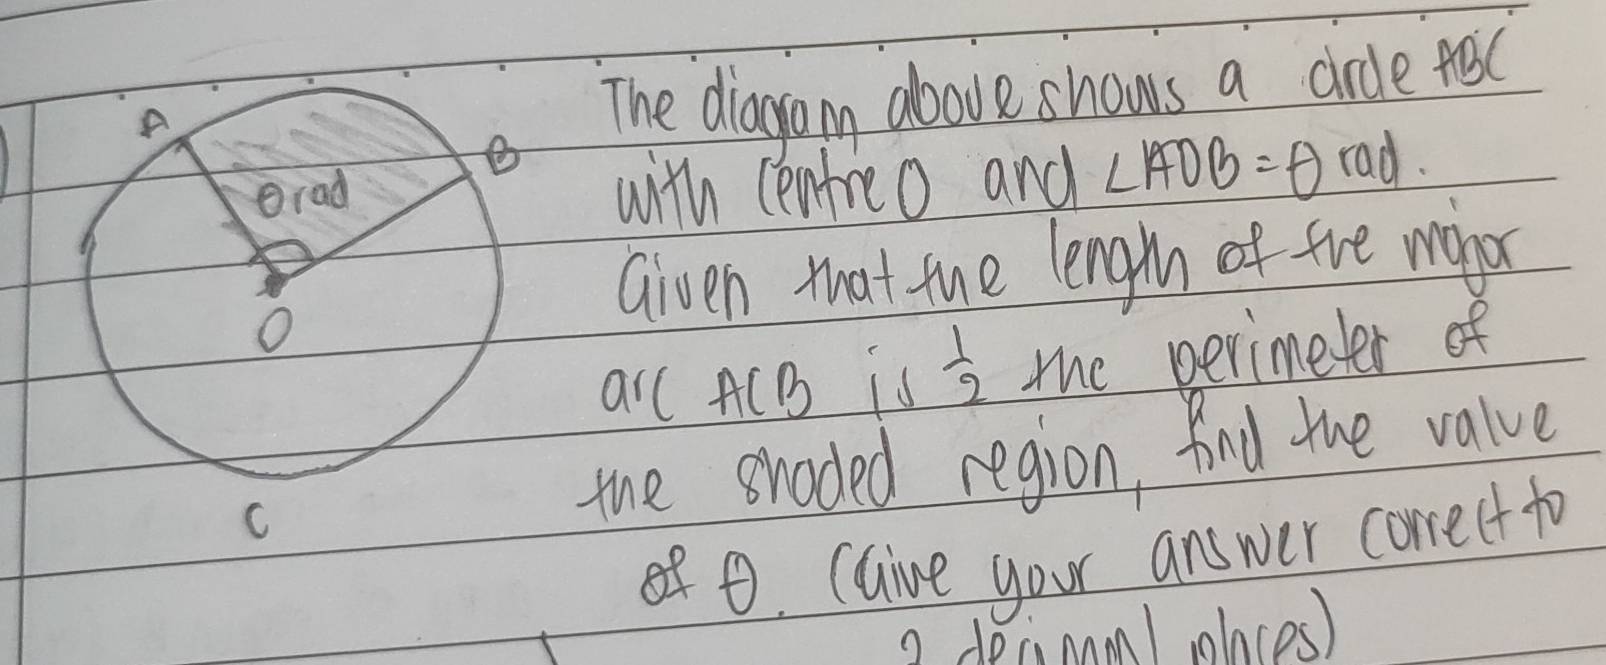 The diagram above shows a circle ABC
with centre O and ∠AOB = θ rad.
Given that the length of the major
arc ACB is 1/2 the perimeter of
the shaded region, find the value
of θ. (Give your answer correct to
decimal places)
A
B
θ rad
O
C